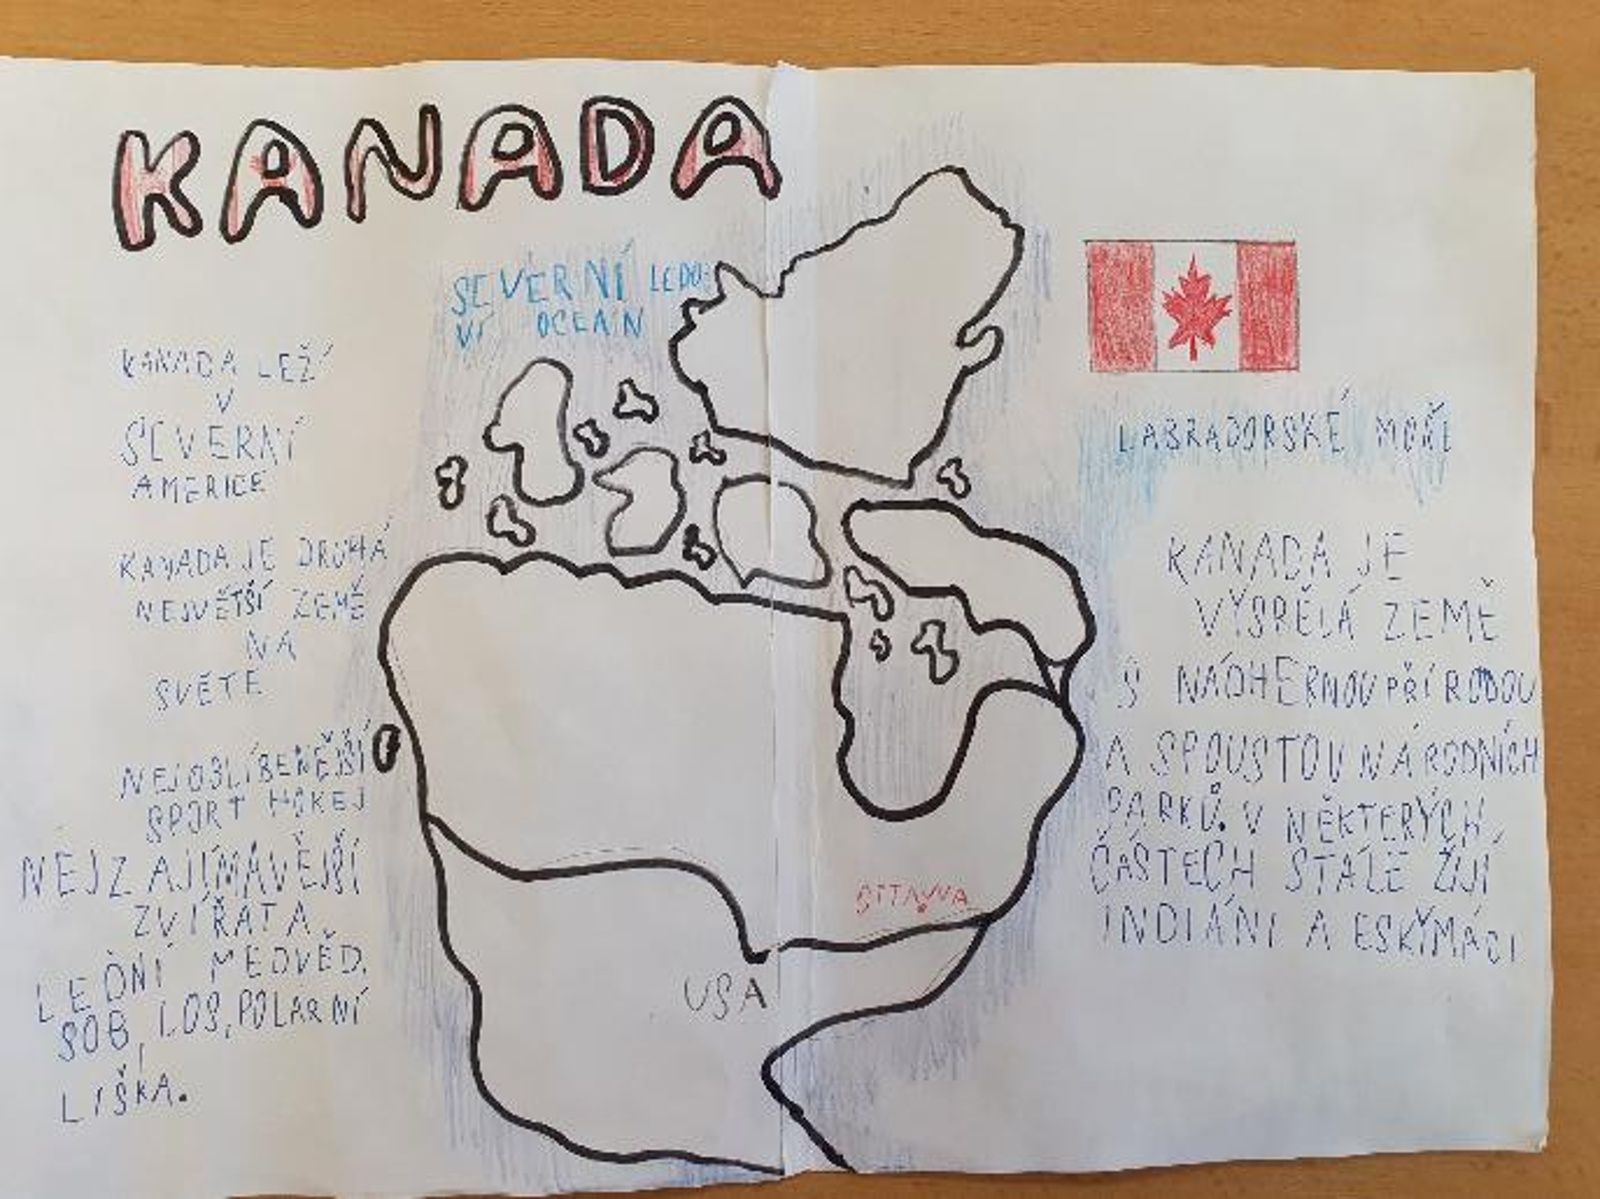 KANADA
SEVERNÍ LEDO
VÍ OCEAN
KANADA LEŽÍ
V
SEVERNÍ
AMERICE
KANADA JE DRUHÁ
NEJVĚTŠÍ ZEMĚ
NA
SVĚTĚ
NEJOBLÍBENĚJŠÍ
SPORT HOKEJ
NEJZAJÍMAVĚJŠÍ
ZVÍŘATA
LEDNÍ MEDVĚD,
SOB, LOS, POLARNÍ
LIŠKA.
OTTAWA
USA
LABRADORSKÉ MOŘE
KANADA JE
VYSPĚLÁ ZEMĚ
S NÁDHERNOU PŘÍRODOU
A SPOUSTOU NÁRODNÍCH
PARKŮ. V NĚKTERÝCH
ČÁSTECH STÁLE ŽIJÍ
INDIÁNI A ESKYMÁCI